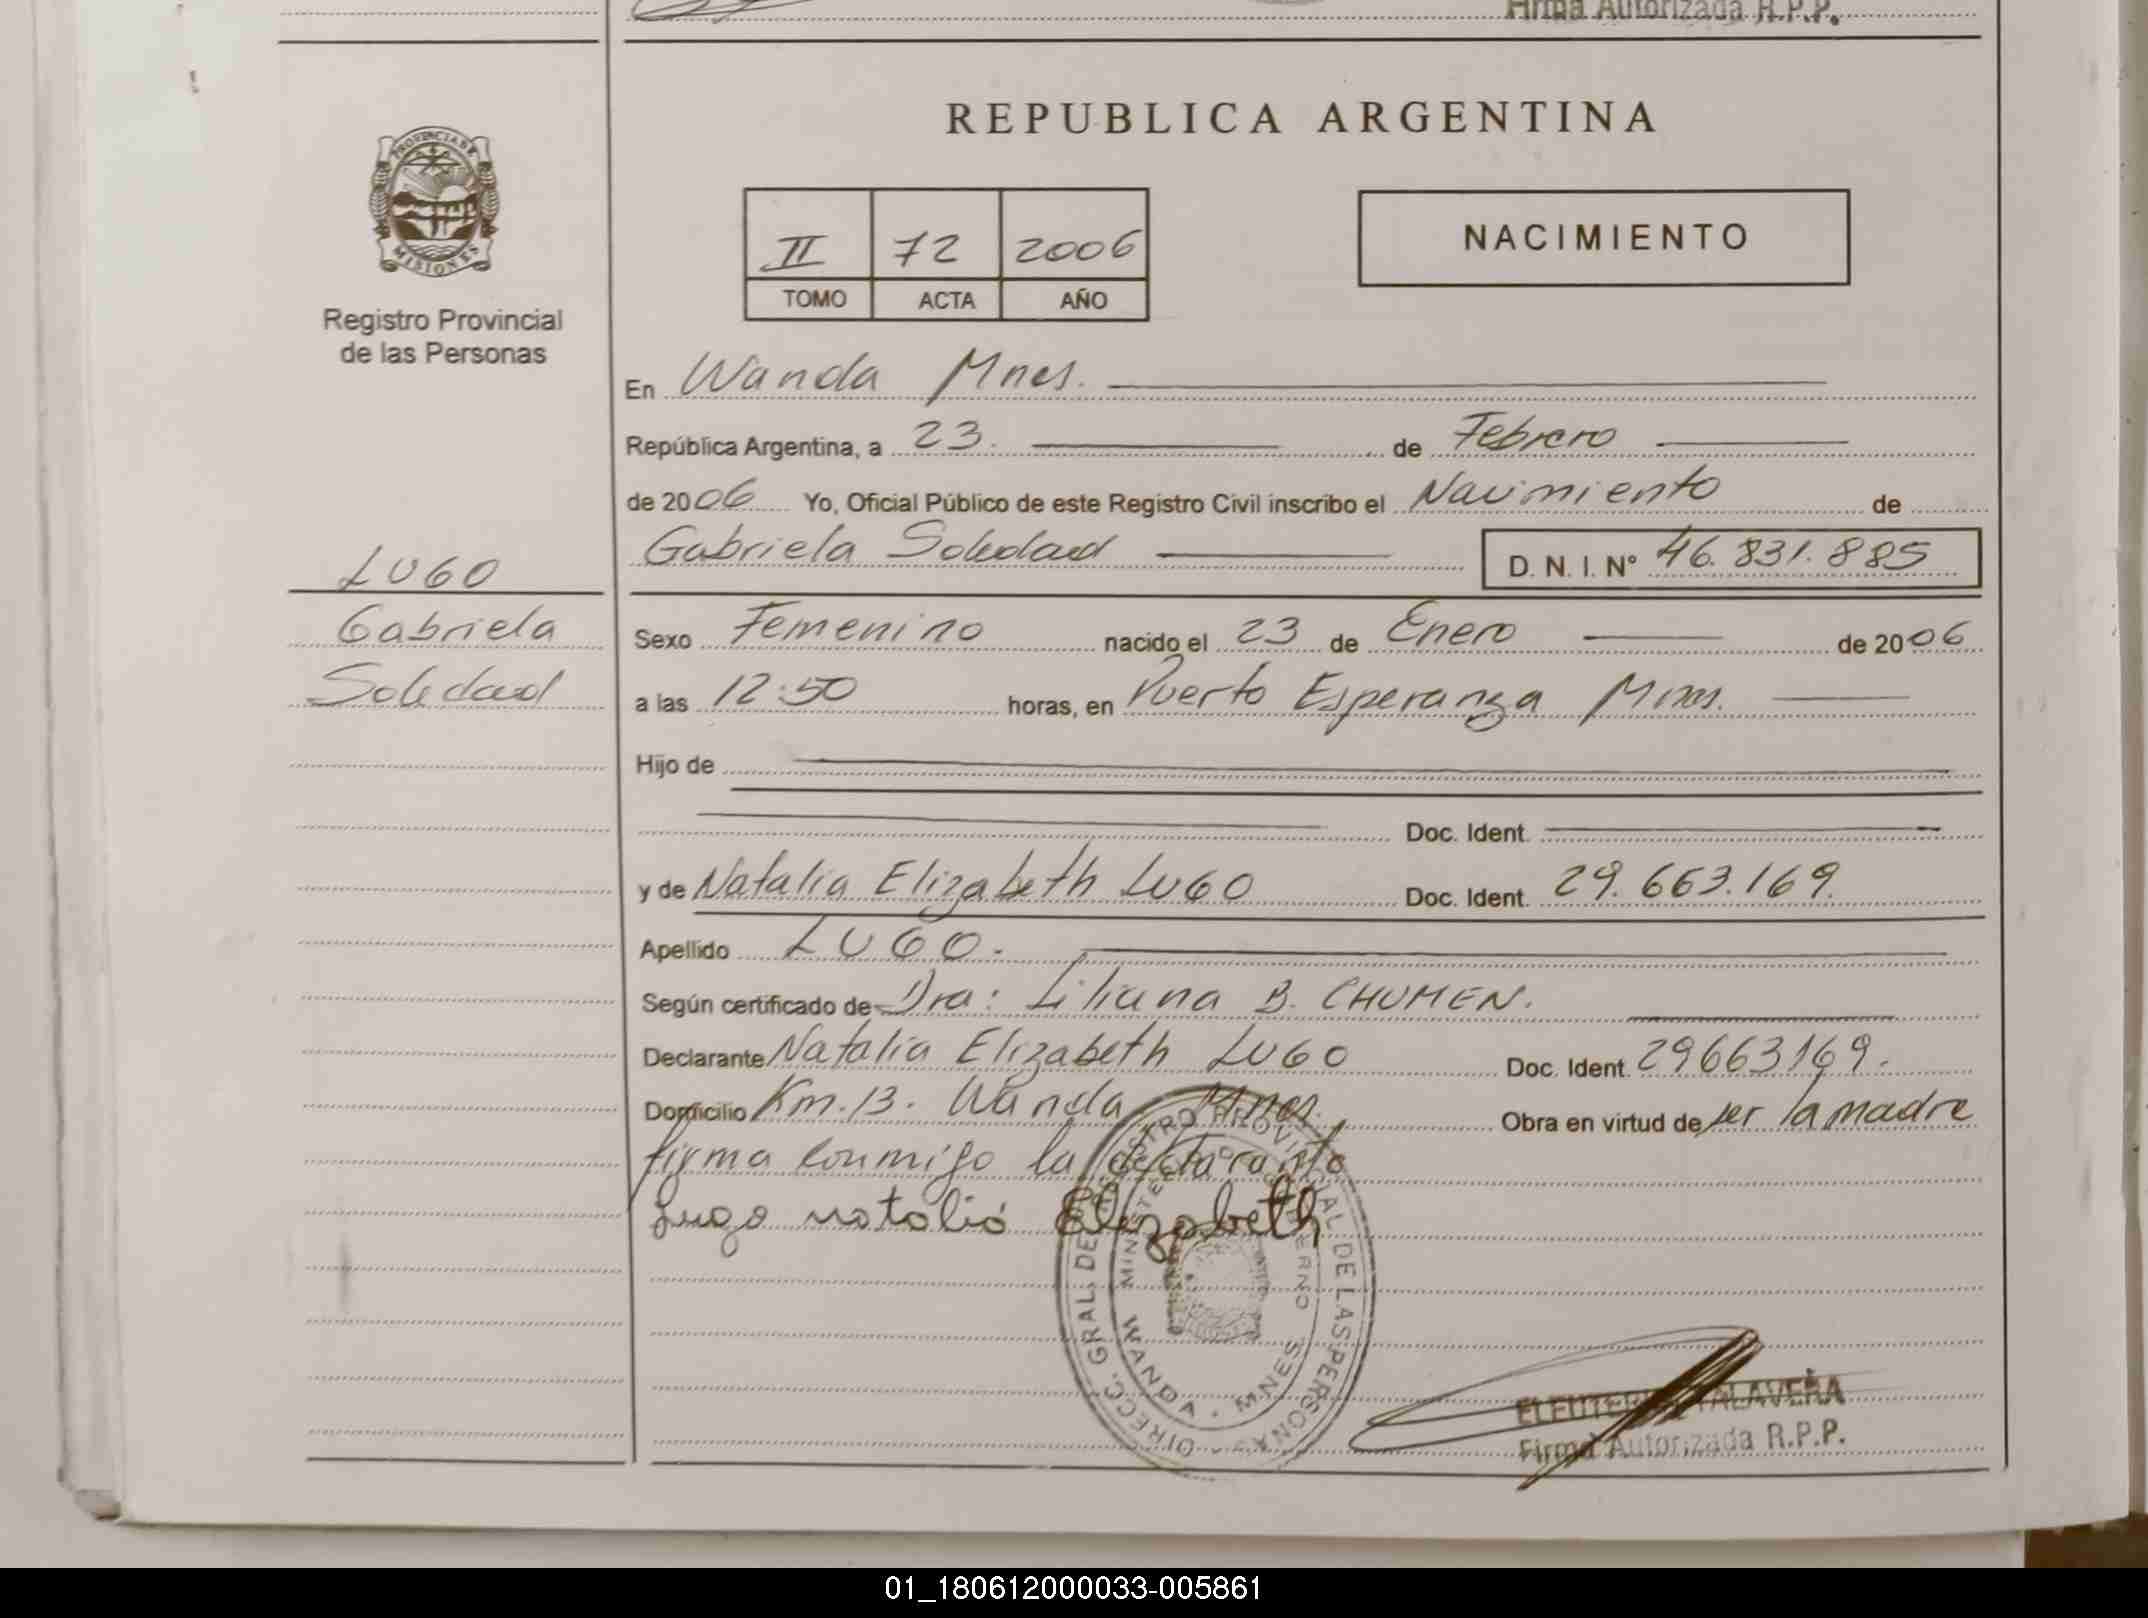 Firma Autorizada R.P.P.
REPUBLICA ARGENTINA
PROVINCIA DE
MISIONES
Registro Provincial
de las Personas
II 72 2006
TOMO ACTA AÑO
NACIMIENTO
En Wanda Mnes.
República Argentina, a 23. de Febrero
de 2006 Yo, Oficial Público de este Registro Civil inscribo el Nacimiento de
Gabriela Soledad D. N. I. N° 46.831.885
LUGO
Gabriela
Soledad
Sexo Femenino nacido el 23 de Enero de 2006
a las 12:50 horas, en Puerto Esperanza Mnes.
Hijo de
Doc. Ident.
y de Natalia Elizabeth LUGO Doc. Ident. 29.663.169.
Apellido LUGO.
Según certificado de Dra: Liliana B. CHUMEN.
Declarante Natalia Elizabeth LUGO Doc. Ident. 29663169.
Domicilio Km.13. Wanda Mnes. Obra en virtud de ser la madre
firma conmigo la declarante
Lugo natalia Elizabeth
DIRECC. GRAL. DE REGISTRO PROVINCIAL DE LAS PERSONAS
MINISTERIO GOBIERNO
WANDA - MNES.
TALAVERA
Firma Autorizada R.P.P.
01_180612000033-005861